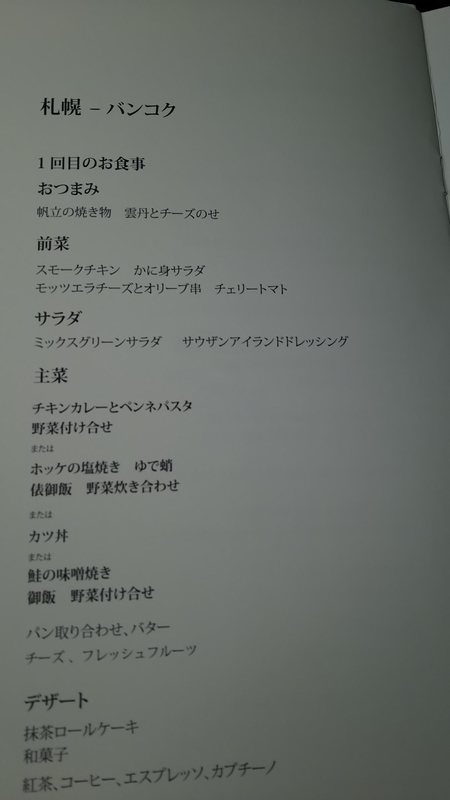 札幌 – バンコク
1回目のお食事
おつまみ
帆立の焼き物　雲丹とチーズのせ
前菜
スモークチキン　かに身サラダ
モッツエラチーズとオリーブ串　チェリートマト
サラダ
ミックスグリーンサラダ　サウザンアイランドドレッシング
主菜
チキンカレーとペンネパスタ
野菜付け合せ
または
ホッケの塩焼き　ゆで蛸
俵御飯　野菜炊き合わせ
または
カツ丼
または
鮭の味噌焼き
御飯　野菜付け合せ
パン取り合わせ、バター
チーズ 、フレッシュフルーツ
デザート
抹茶ロールケーキ
和菓子
紅茶、コーヒー、エスプレッソ、カプチーノ